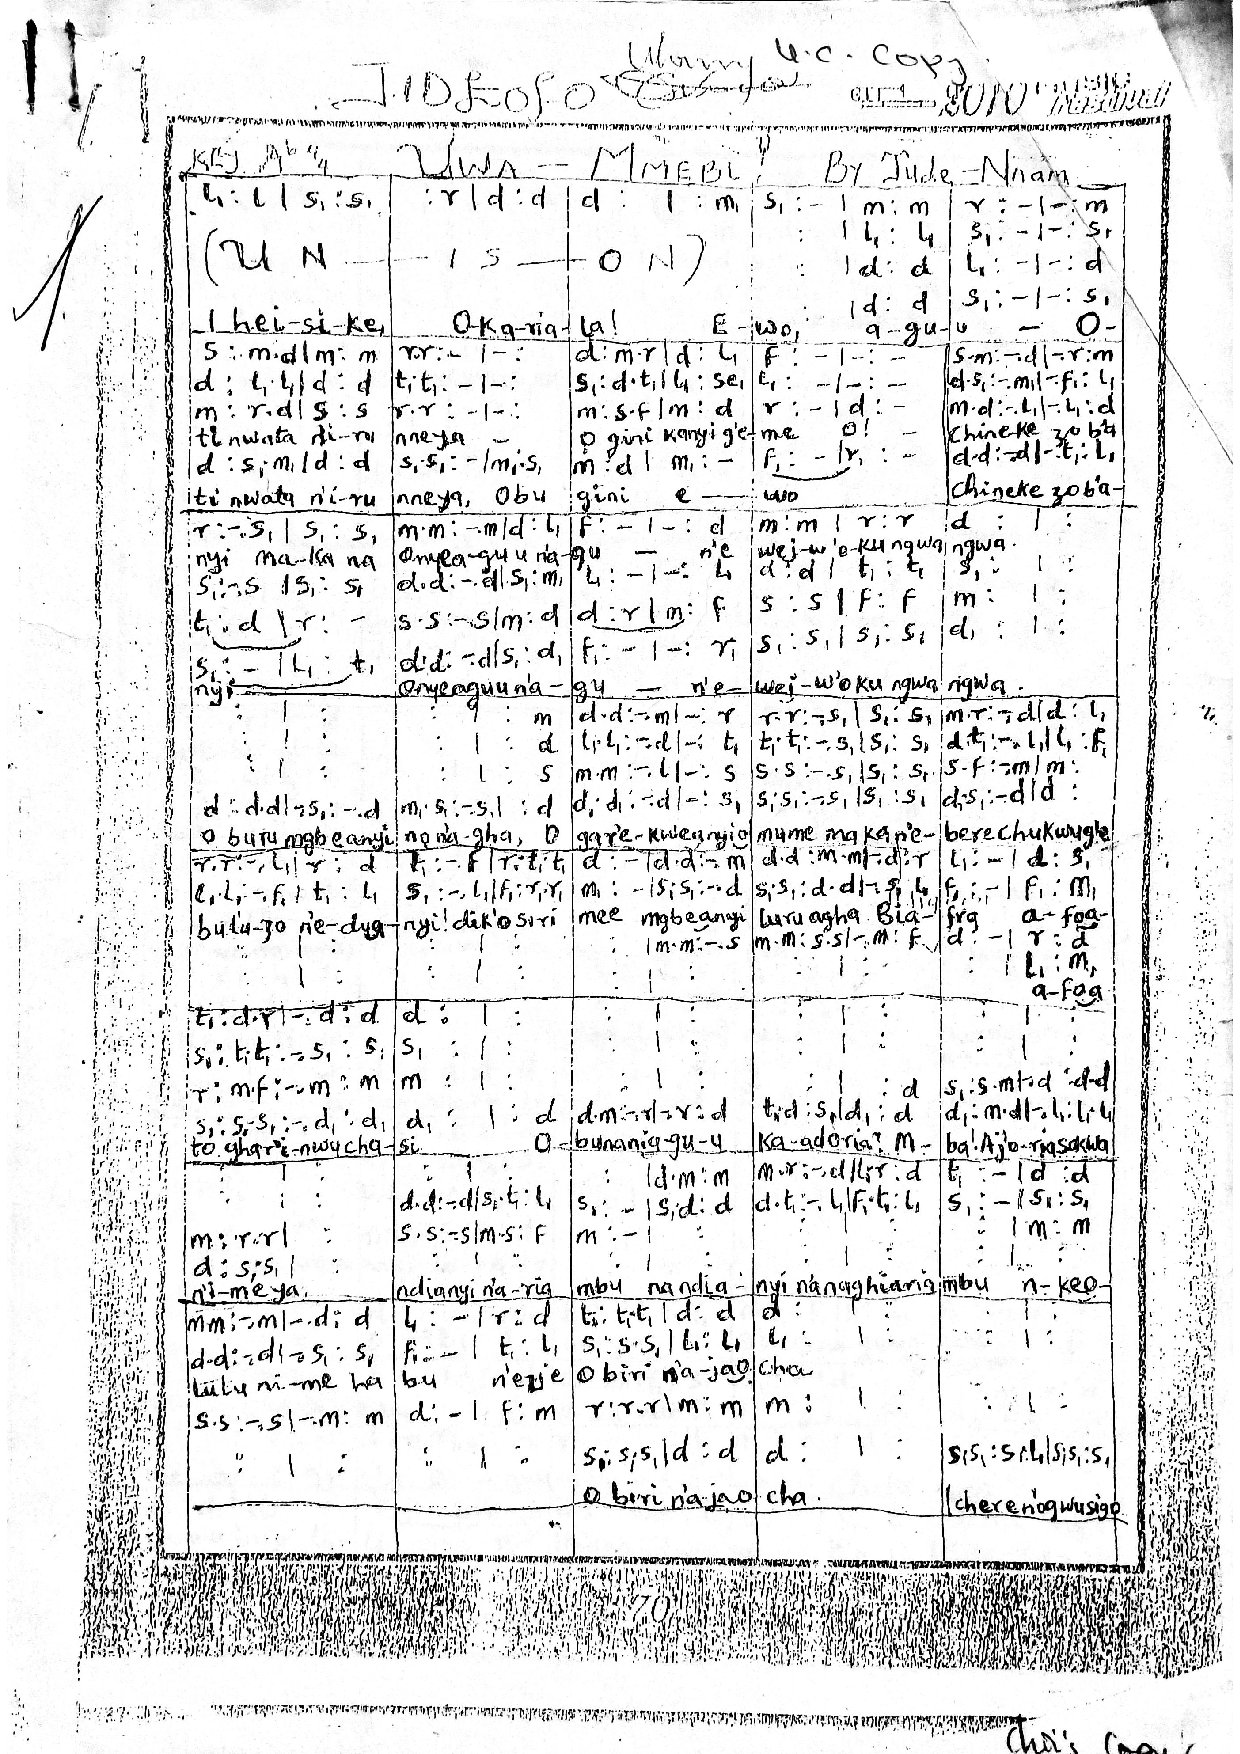 U.C. Copy
JIDEOFO
2010
KEY Ab 4/4 UWA — MMEBI By Jude Nnam
l₁ : l | s₁ : s₁ : r | d : d d : | : m₁ s₁ : - | m : m r : - | - : m
: | l₁ : l₁ s₁ : - | - : s₁
(UN — IS — ON) : | d : d l₁ : - | - : d
| d : d s₁ : - | - : s₁
I hei-si-ke, O-ka-ria-la! E-wo, a-gu-u — O-
s : m.d | m : m r.r : - | - : d : m.r | d : l₁ f : - | - : - s.m : -.d | -.r : m
d : l₁.l₁ | d : d t₁.t₁ : - | - : s₁ : d.t₁ | l₁ : se₁ l₁ : - | - : - d.s₁ : -.m₁ | -.f₁ : l₁
m : r.d | s : s r.r : - | - : m : s.f | m : d r : - | d : - m.d : -.l₁ | -.l₁ : d
ti nwata n'i-ru nneya — O gini kanyi ge-me O! — Chineke zo ba
d : s₁.m₁ | d : d s₁.s₁ : - | m₁.s₁ m : d | m₁ : - f₁ : - | r₁ : - d.d : -.d | -.t₁ : l₁
iti nwata n'i-ru nneya, Obu gini e — wo Chineke zo ba-
r : -.s₁ | s₁ : s₁ m.m : -.m | d : l₁ f : - | - : d m : m | r : r d : | :
nyi ma-ka na Onyea-gu u na-gu — n'e wej-w'o-ku ngwa ngwa.
s₁ : -.s | s₁ : s₁ d.d : -.d | s₁ : m₁ l₁ : - | - : l₁ d : d | t₁ : t₁ s₁ : | :
t₁ : d | r : - s.s : -.s | m : d d : r | m : f s : s | f : f m : | :
s₁ : - | l₁ : t₁ d.d : -.d | s₁ : d₁ f₁ : - | - : r₁ s₁ : s₁ | s₁ : s₁ d₁ : | :
nyi Onyeaguu n'a-gu — n'e-wej-w'oku ngwa ngwa.
: | : : | : m d.d : -.m | - : r r.r : -.s₁ | s₁ : s₁ m.r : -.d | d : l₁
: | : : | : d l₁.l₁ : -.d | - : t₁ t₁.t₁ : -.s₁ | s₁ : s₁ d.t₁ : -.l₁ | l₁ : f₁
: | : : | : s m.m : -.l | - : s s.s : -.s₁ | s₁ : s₁ s.f : -.m | m :
d : d.d | -.s₁ : -.d m₁.s₁ : -.s₁ | : d d₁.d₁ : -.d | - : s₁ s₁.s₁ : -.s₁ | s₁ : s₁ d.s₁ : -.d | d :
O buru mgbeanyi no na-gha, O gar'e-kweanyi o mume maka n'e-bere chukwugbe
r.r : -.l₁ | r : d t₁ : -.f | r : t₁.t₁ d : - | d.d : -.m d.d : m.m | -.d : r l₁ : - | d : s₁
l₁.l₁ : -.f₁ | t₁ : l₁ s₁ : -.l₁ | f₁ : r₁.r₁ m₁ : - | s₁.s₁ : -.d s₁.s₁ : d.d | -.s₁ : l₁ f₁ : - | f₁ : m₁
butu-zo n'e-dug-nyi! dik'osiri mee mgbeanyi luru agha Bia-fra a-foa-
: | : : | : | m.m : -.s m.m : s.s | -.m : f d : - | r : d
: | : : | : : | : : | : | l₁ : m₁
a-foa
t₁ : d.r | -.d : d d : | : : | : : | : : | :
s₁ : t₁.t₁ : -.s₁ : s₁ s₁ : | : : | : : | : : | :
r : m.f : -.m : m m : | : : | : : | : d s₁ : s.m | -.d : d.d
s₁ : s₁.s₁ : -.d₁ : d₁ d₁ : | : d d.m : -.r | -.r : d t₁.d : s₁ | d₁ : d d₁ : m.d | -.l₁ : l₁.l₁
to ghar'i-nwu cha-si. O-bunania-gu-u ka-adoria? M-ba! Ajo-riasakwa
: | : : | : | d.m : m m.r : -.d | l₁.r : d t₁ : - | d : d
: | : d.d : -.d | s₁.t₁ : l₁ s₁ : - | s₁.d : d d.t₁ : -.l₁ | f₁.t₁ : l₁ s₁ : - | s₁ : s₁
m : r.r | : s.s : -.s | m.s : f m : - | : : | : | m : m
d : s₁.s₁ | : : | : : | : : | : : | :
n'i-me ya. ndianyi n'a-ria mbu na ndia-nyi nanaghiaria mbu n-keo-
m.m : -.m | -.d : d l₁ : - | r : d t₁ : t₁.t₁ | d : d d : | : : | :
d.d : -.d | -.s₁ : s₁ f₁ : - | t₁ : l₁ s₁ : s.s₁ | l₁ : l₁ l₁ : | : : | :
lulu ni-me ha bu n'ezie O biri n'a-jao cha
s.s : -.s | -.m : m d : - | f : m r : r.r | m : m m : | : : | :
: | : : | : s₁ : s₁.s₁ | d : d d : | : s₁.s₁ : s₁.l₁ | s₁.s₁ : s₁
O biri n'a-jao cha. Icheren'ogwusigo
70